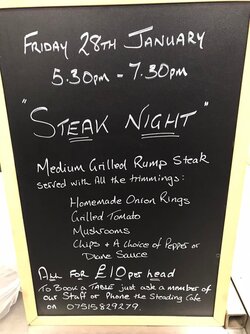 FRIDAY 28TH JANUARY
5.30pm - 7.30pm
"STEAK NIGHT"
Medium Grilled Rump Steak
served with All the trimmings:
Homemade Onion Rings
Grilled Tomato
Mushrooms
Chips + A choice of Pepper or
Diane Sauce
ALL FOR £10 per head
To Book a TABLE just ask a member of
our Staff or Phone the Steading Cafe
on 07515829279